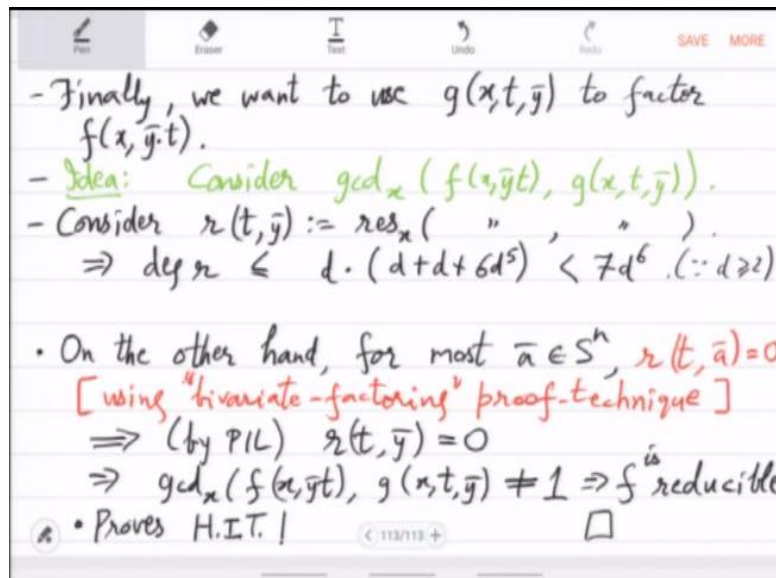 Pen Eraser Text Undo Redo SAVE MORE
- Finally, we want to use g(x,t,ȳ) to factor
f(x, ȳ.t).
- Idea: Consider gcd_x ( f(x,ȳt), g(x,t,ȳ)).
- Consider r(t,ȳ) := res_x( " , " ).
⇒ deg r ≤ d · (d+d+6d⁵) < 7d⁶ .(∵ d≥2)
• On the other hand, for most ā ∈ Sⁿ, r(t,ā)=0
[using "bivariate-factoring" proof-technique]
⟹ (by PIL) r(t,ȳ)=0
⇒ gcd_x(f(x,ȳt), g(x,t,ȳ) ≠ 1 ⇒ f is reducible
• Proves H.I.T.! □
< 113/113 +